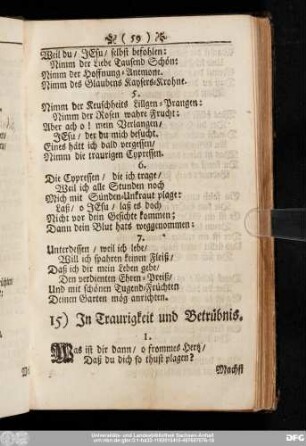 ( 59 )
Weil du/ JEsu/ selbst befohlen:
Nimm der Liebe Tausend Schön:
Nimm der Hoffnung-Anemone.
Nimm des Glaubens Kaysers-Krohne.
5.
Nimm der Keuschheits Lilgen-Prangen:
Nimm der Rosen wahre Frucht:
Aber ach o! mein Verlangen/
JEsu/ der du mich besucht.
Eines hätt ich bald vergessen/
Nimm die traurigen Cypressen.
6.
Die Cypressen/ die ich trage/
Weil ich alle Stunden noch
Mich mit Sünden-Unkraut plage:
Laß/ o JEsu/ laß es doch
Nicht vor dein Gesichte kommen;
Dann dein Blut hats weggenommen:
7.
Unterdessen/ weil ich lebe/
Will ich spahren keinen Fleiß/
Daß ich dir mein Leben gebe/
Den verdienten Ehren-Preiß/
Und mit schönen Tugend-Früchten
Deinen Garten mög anrichten.
15) In Traurigkeit und Betrübnis.
1.
Was ist dir dann/ o frommes Hertz/
Daß du dich so thust plagen?
Machst
Universitäts- und Landesbibliothek Sachsen-Anhalt
DFG